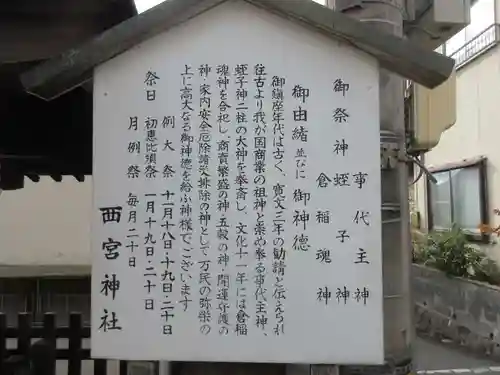 御祭神 事代主神
蛭子神
倉稲魂神
御由緒並びに御神徳
御鎮座年代は古く、寛文三年の勧請と伝えられ
往古より我が国商業の祖神と崇め奉る事代主神、
蛭子神二柱の大神を奉斎し、文化十一年には倉稲
魂神を合祀し、商売繁盛の神・五穀の神・開運守護の
神・家内安全厄除諸災排除の神として万民の弥栄の
上に高大なる御神徳を給ふ神様でございます
祭日 例大祭 十一月十八日・十九日・二十日
初恵比須祭 一月十九日・二十日
月例祭 毎月二十日
西宮神社